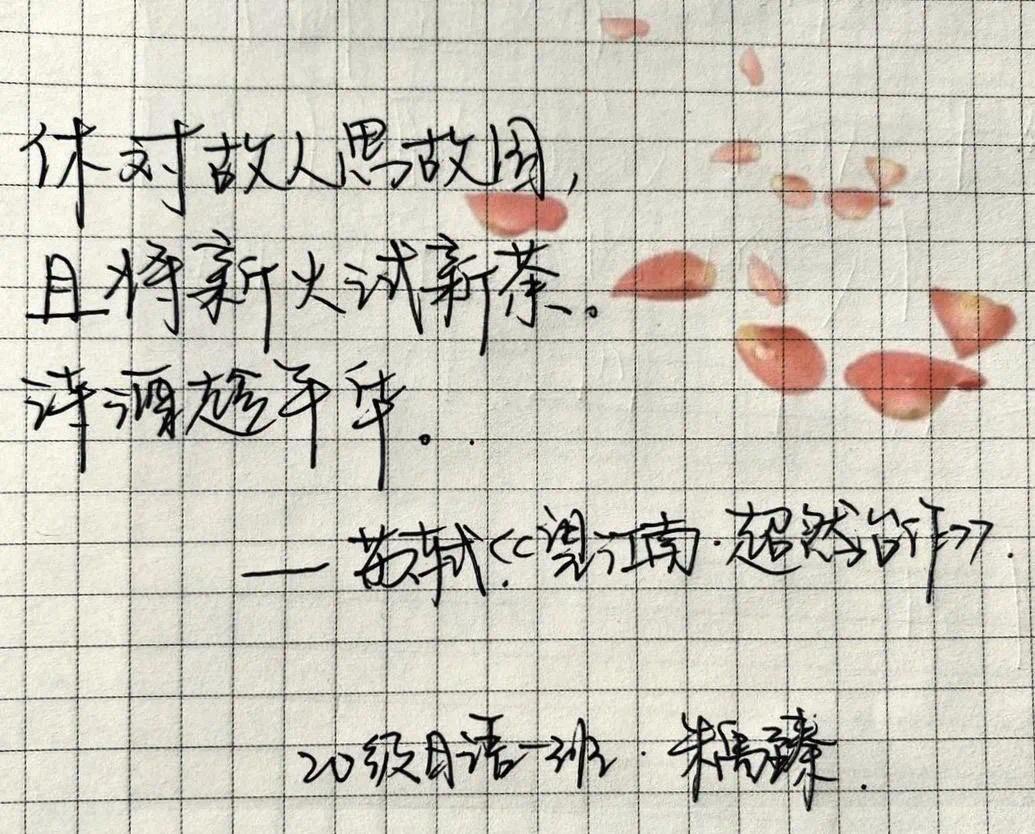 休对故人思故国,
且将新火试新茶。
诗酒趁年华。
—苏轼《望江南·超然台作》.
20级日语一班·朱禹臻.